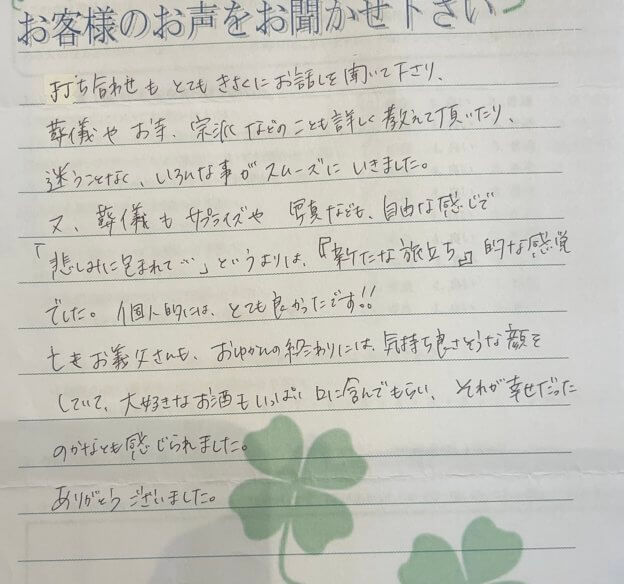 お客様のお声をお聞かせ下さい
打ち合わせも とても きさくに お話しを聞いて下さり、
葬儀や お寺、宗派 などのことも詳しく教えて頂いたり、
迷うことなく、いろんな事が スムーズに いきました。
又、葬儀も サプライズや 写真なども、自由な感じで
「悲しみに包まれて…」というよりは、『新たな旅立ち』的な感覚
でした。個人的には、とても良かったです!!
亡きお義父さんも、おゆかんの終わりには、気持ち良さそうな顔を
していて、大好きなお酒もいっぱい口に含んでもらい、それが幸せだった
のかなとも感じられました。
ありがとう ございました。